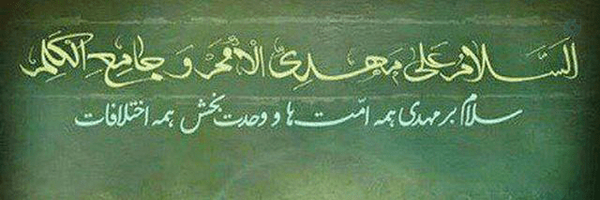 السَّلامُ عَلی مَهدِیِّ الأُمَمِ وَ جامِعِ الْکَلِمِ
سلام بر مهدی همه امّت ها و وحدت بخش همه اختلافات